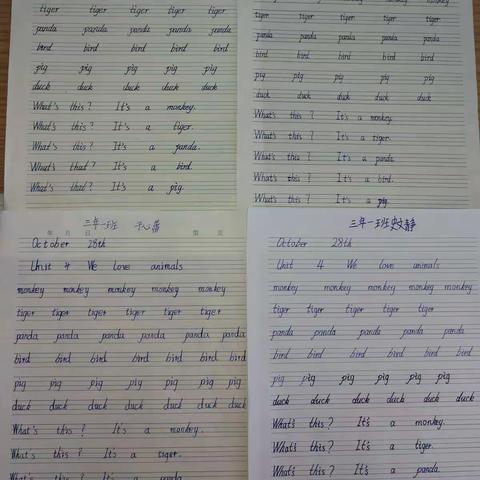 tiger tiger tiger tiger tiger
panda panda panda panda panda
bird bird bird bird bird
pig pig pig pig pig
duck duck duck duck duck
What's this? It's a monkey.
What's this? It's a tiger.
What's this? It's a panda.
What's that? It's a bird.
What's that? It's a pig.
tiger tiger tiger tiger tiger
panda panda panda panda panda
bird bird bird bird bird
pig pig pig pig pig
duck duck duck duck duck
What's this? It's a monkey.
What's this? It's a tiger.
What's this? It's a panda.
What's this? It's a bird.
What's this? It's a pig.
三年一班
年 月 日
October 28th
Unit 4 We love animals
monkey monkey monkey monkey monkey
tiger tiger tiger tiger tiger tiger
panda panda panda panda panda panda
bird bird bird bird bird bird
pig pig pig pig pig pig
duck duck duck duck duck duck
What's this? It's a monkey.
What's this? It's a tiger.
What's this? It's a panda
三年一班史文静
October 28th
Unit 4 We love animals
monkey monkey monkey monkey monkey
tiger tiger tiger tiger tiger
panda panda panda panda panda
bird bird bird bird bird bird
pig pig pig pig pig pig
duck duck duck duck duck duck
What's this? It's a monkey.
What's this? It's a tiger.
What's this? It's a panda.